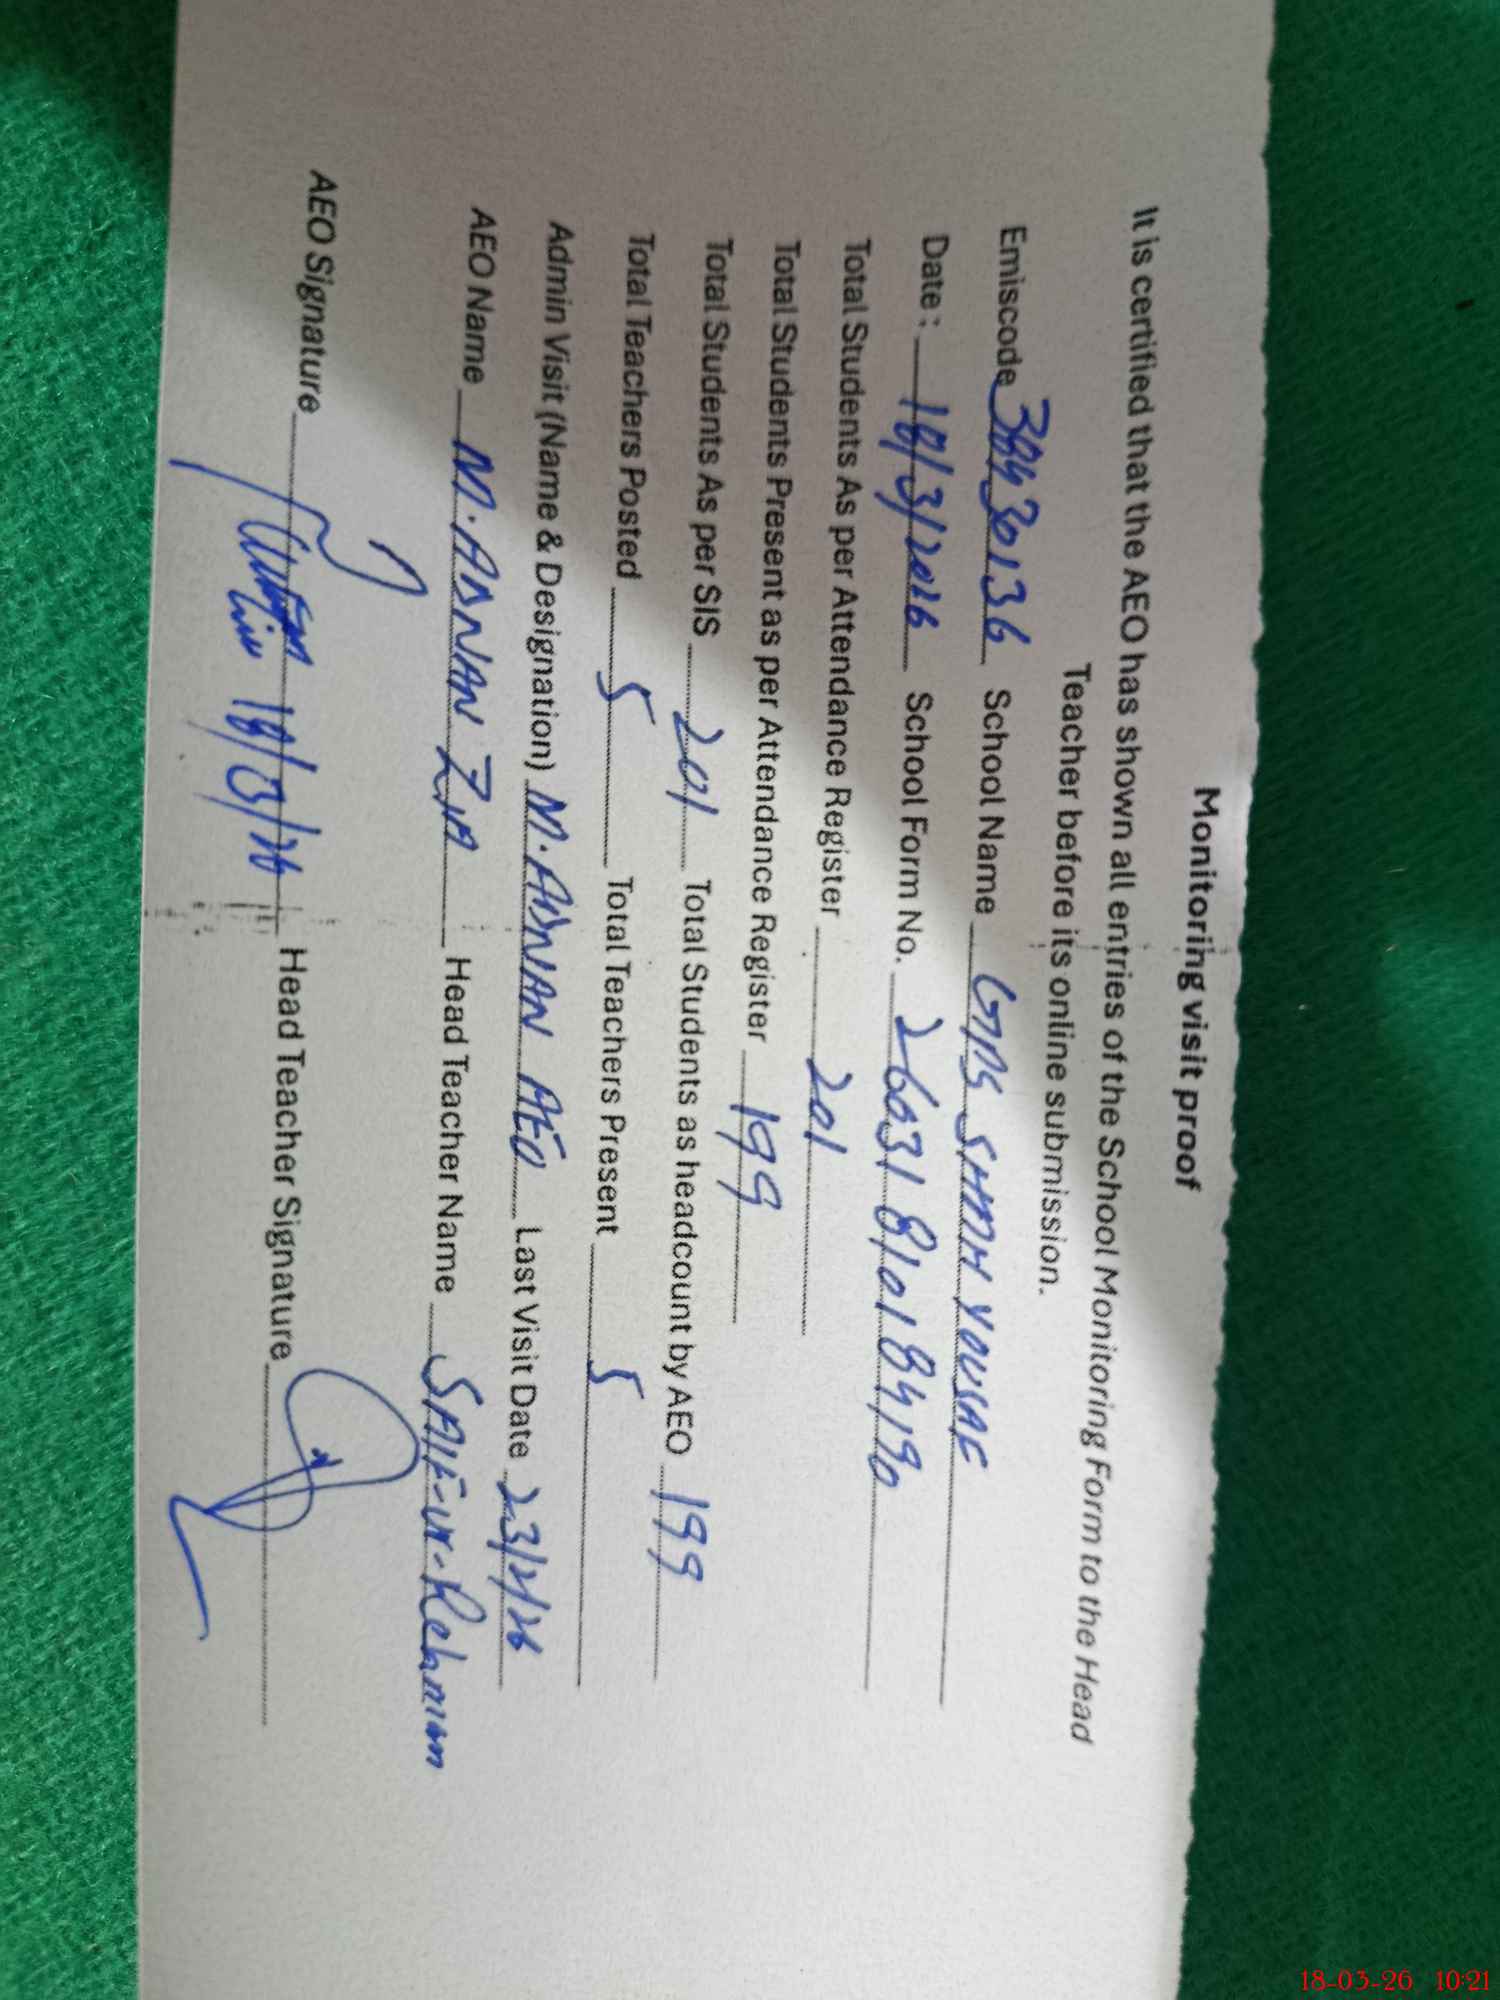 Monitoring visit proof
It is certified that the AEO has shown all entries of the School Monitoring Form to the Head
Teacher before its online submission.
Emiscode 38430136 School Name GPS SHAH YOUSAF
Date: 18/3/2026 School Form No. 26031810184190
Total Students As per Attendance Register 201
Total Students Present as per Attendance Register 199
Total Students As per SIS 201 Total Students as headcount by AEO 199
Total Teachers Posted 5 Total Teachers Present 5
Admin Visit (Name & Designation) M. ADNAN AEO Last Visit Date 23/2/26
AEO Name M. ADNAN ZIA Head Teacher Name SAIF-ur-Rehman
AEO Signature 18/3/26 Head Teacher Signature
18-03-26 10:21